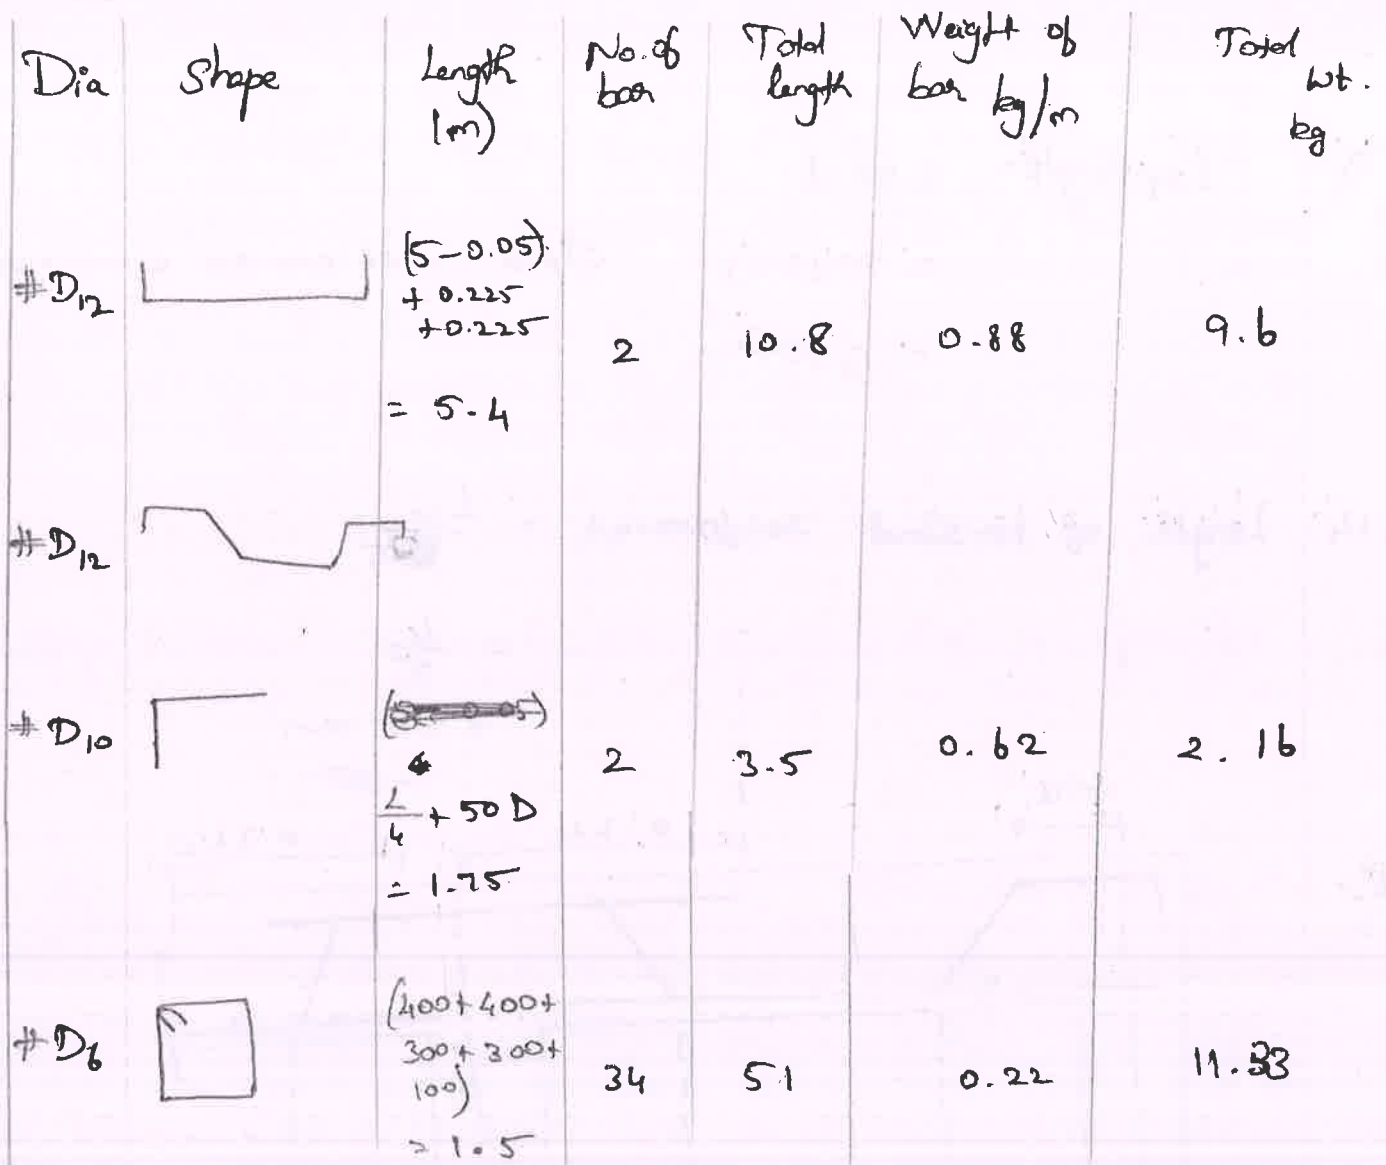 Dia Shape Length (m) No. of bar Total length Weight of bar kg/m Total wt. kg
#D12 (5-0.05) + 0.225 +0.225 = 5.4 2 10.8 0.88 9.6
#D12
#D10 L/4 + 50 D = 1.75 2 3.5 0.62 2.16
#D6 (400+400+ 300+300+ 100) = 1.5 34 51 0.22 11.33